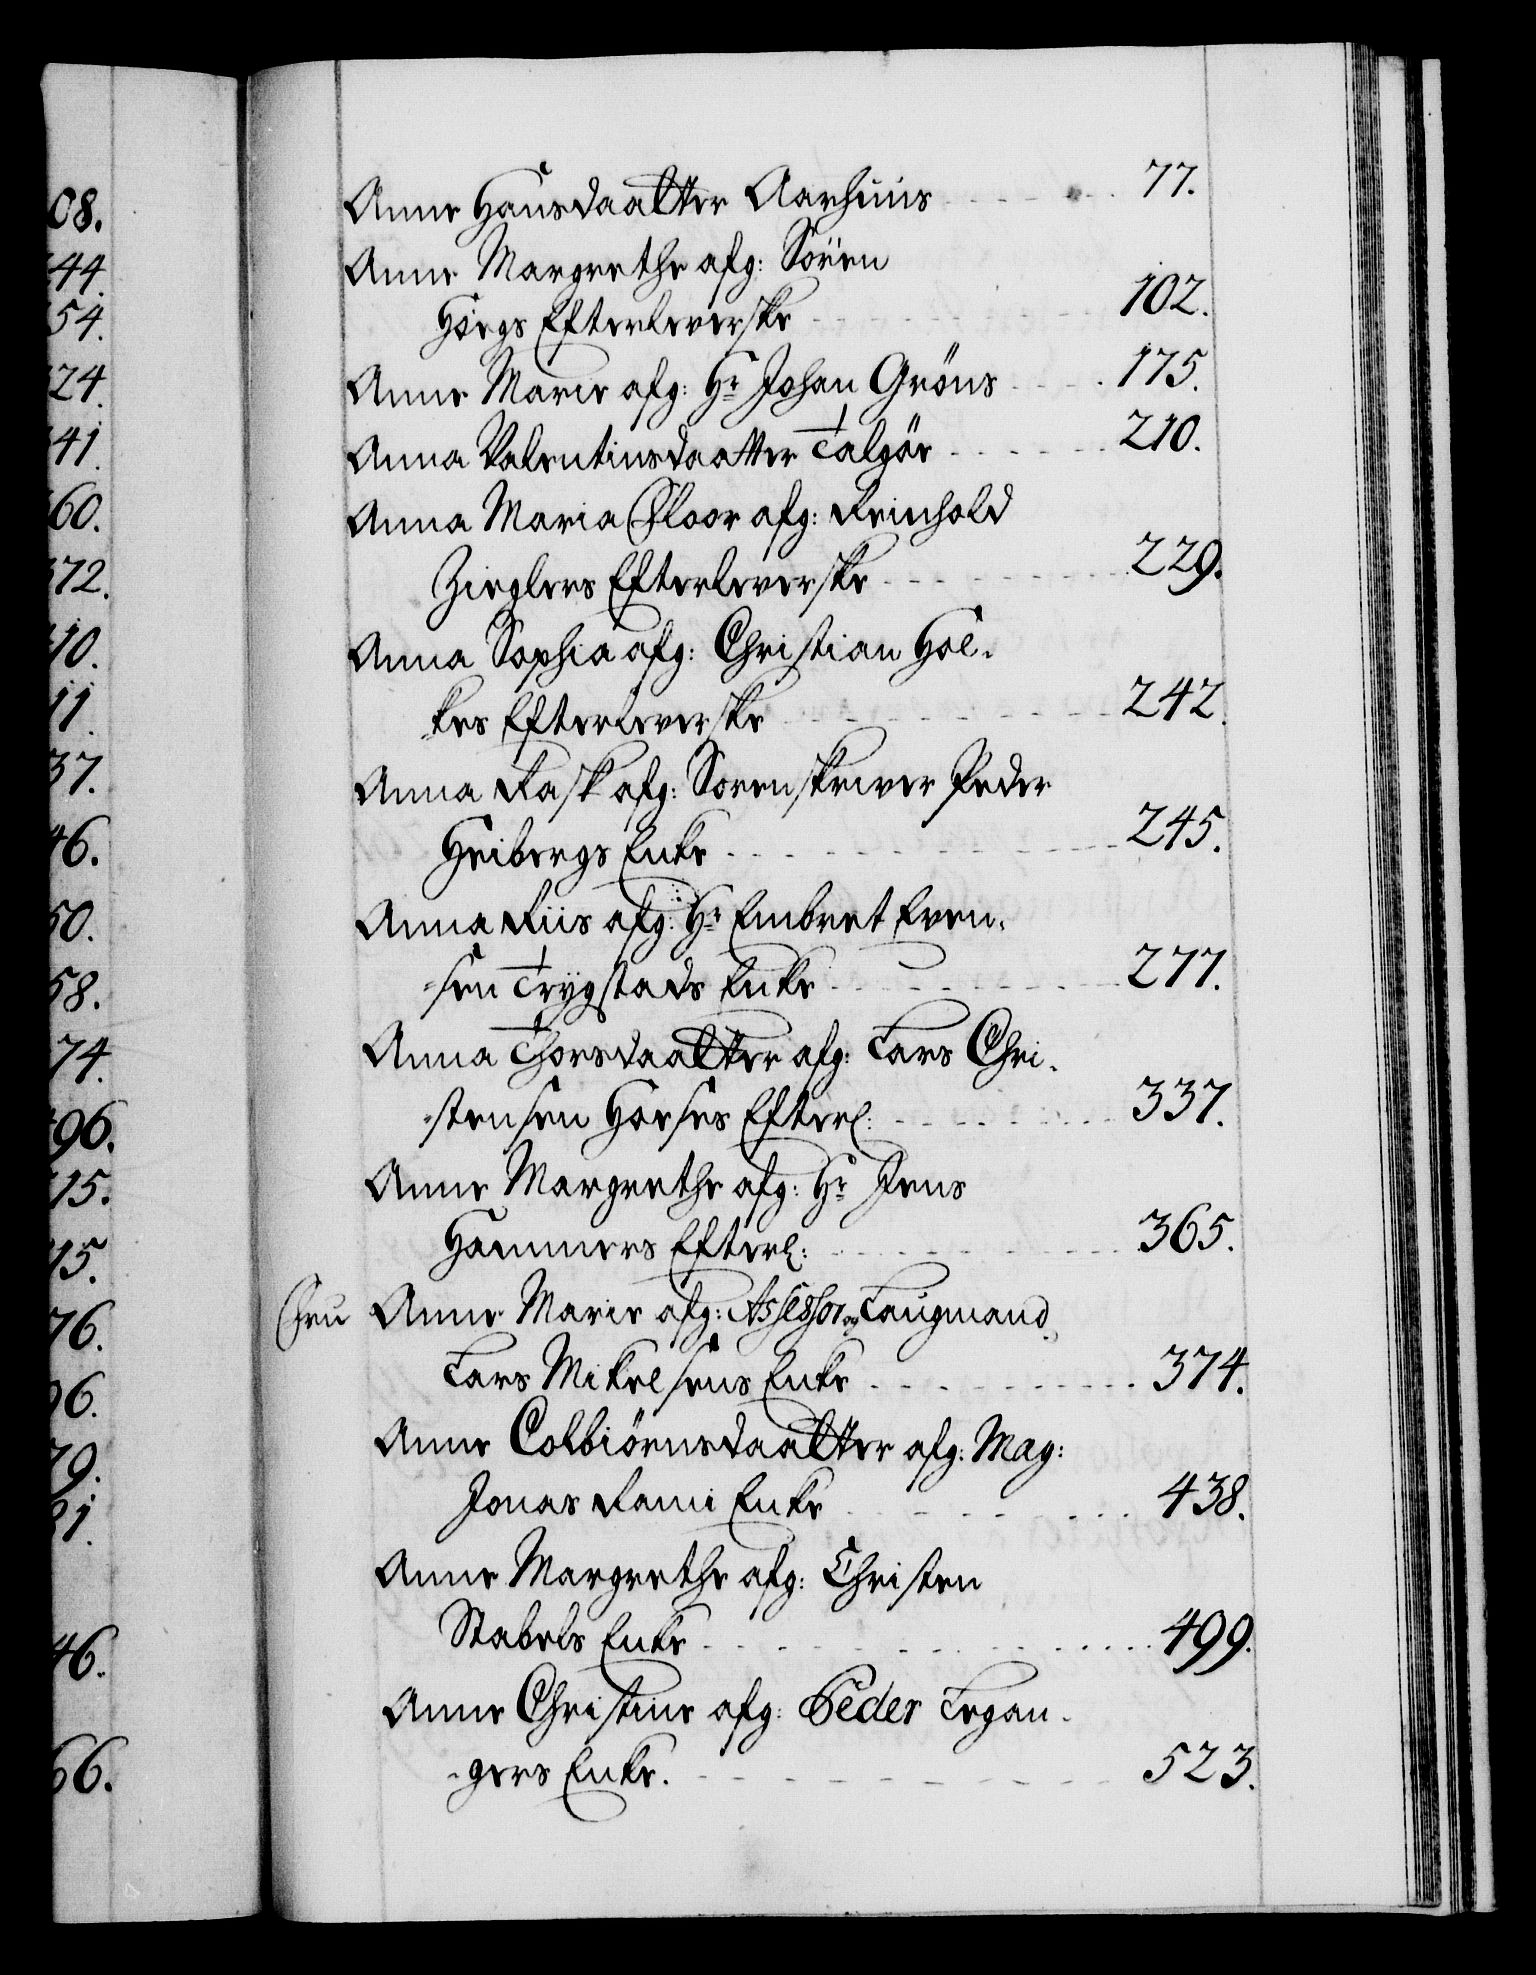 08.
44.
54.
24.
41.
60.
372.
10.
11.
37.
46.
50.
58.
74.
496.
15.
15.
76.
96.
79.
21.
46.
66.
Anne Hansdaatter Aarhuus 77.
Anne Margrethe afg: Sören
Höegs Efterleverske 102.
Anne Marie afg: Hr Johan Gröns 175.
Anna Valentinsdaatter Talgöe 210.
Anna Maria Floor afg: Reinhold
Zieglers Efterleverske 229.
Anna Sophia afg: Christian Hol-
kes Efterleverske 242.
Anna Rask afg: Sorenskriver Peder
Heibergs Enke 245.
Anna Riis afg: Hr Embret Even-
-sen Trygstads Enke 277.
Anna Thorsdaatter afg: Lars Chri-
-stensen Horses Efterl: 337.
Anne Margrethe afg: Hr Jens
Hammers Efterl: 365.
Fru Anne Marie afg: Assessor og Laugmand
Lars Mikelsens Enke 374.
Anne Colbiörnsdaatter afg: Mag:
Jonas Rami Enke 438.
Anne Margrethe afg: Christen
Stabels Enke 499.
Anne Christine afg: Peder Legan-
-gers Enke. 523.